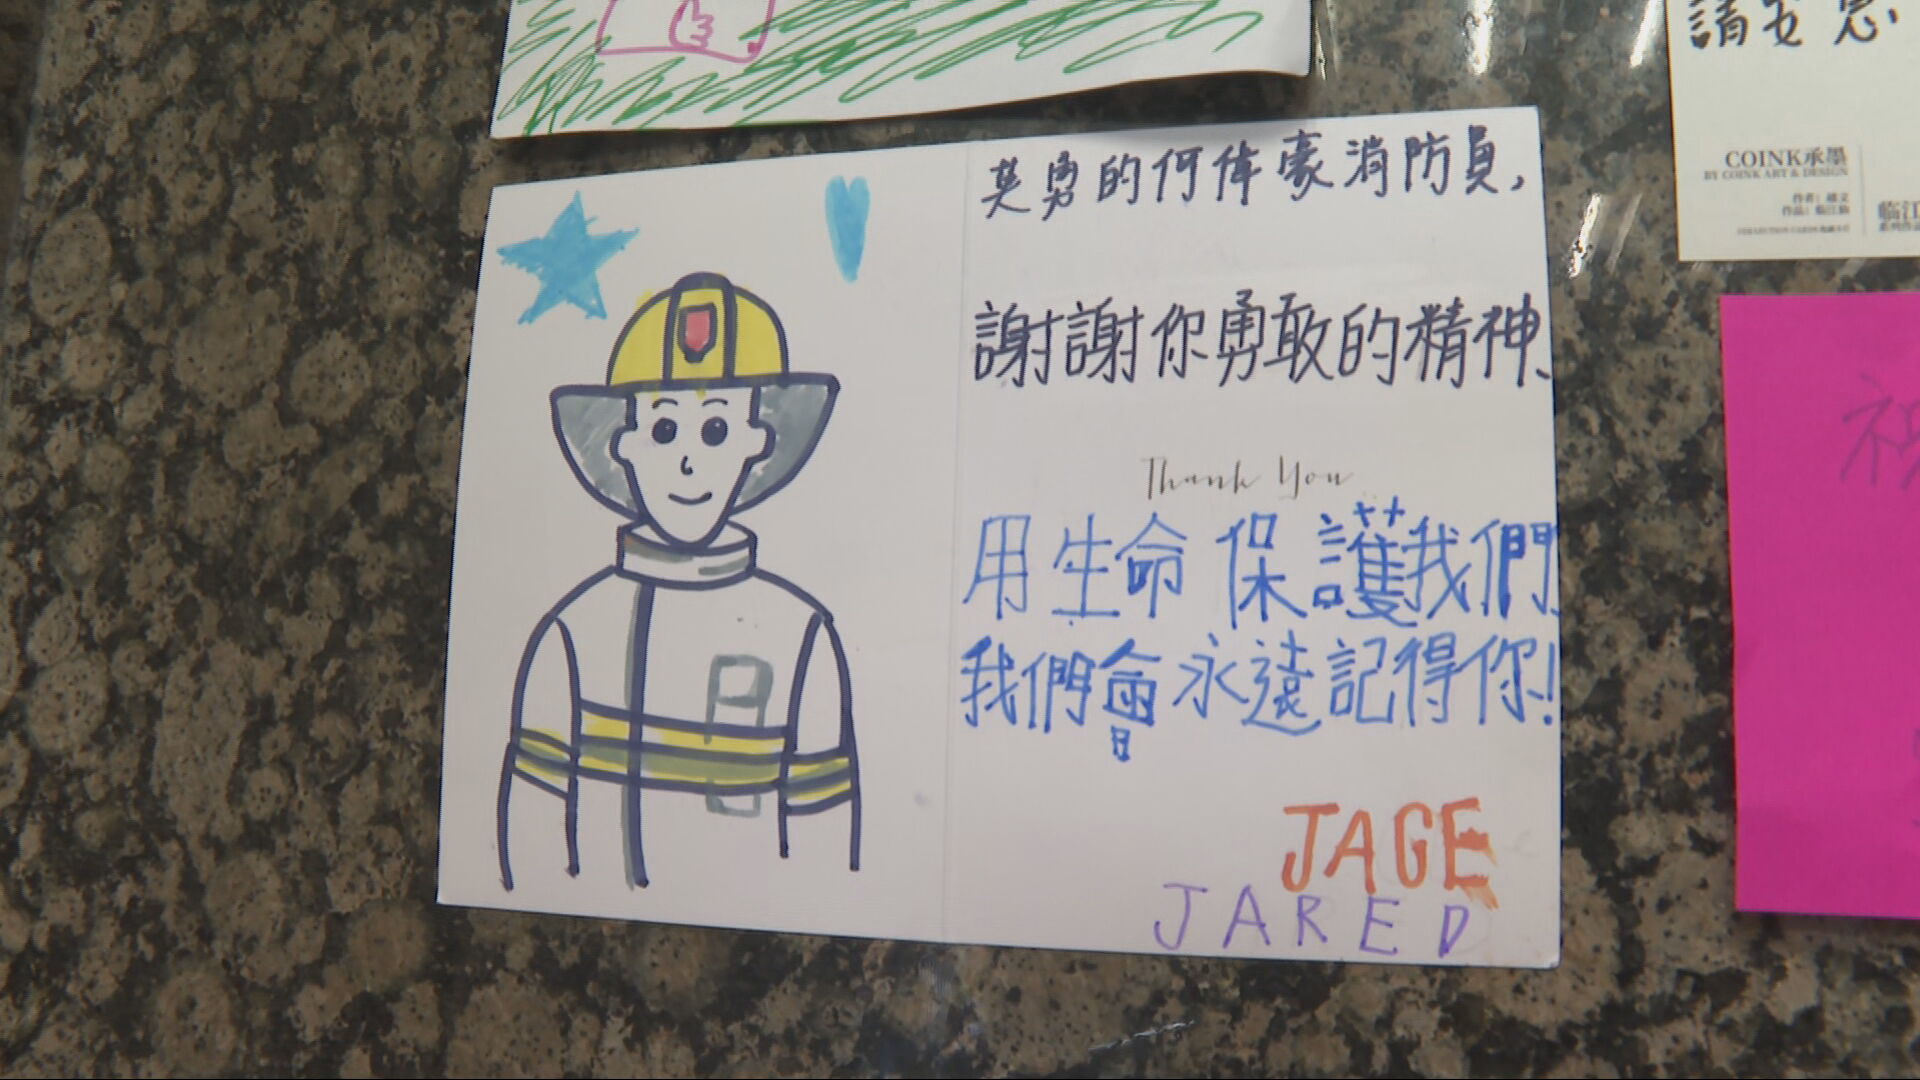 請安息
英勇的何偉豪消防員，
謝謝你勇敢的精神、
Thank You
用生命保護我們、
我們會永遠記得你!
JAGE
JARED
COINK承墨
BY COINK ART & DESIGN
临江
祝